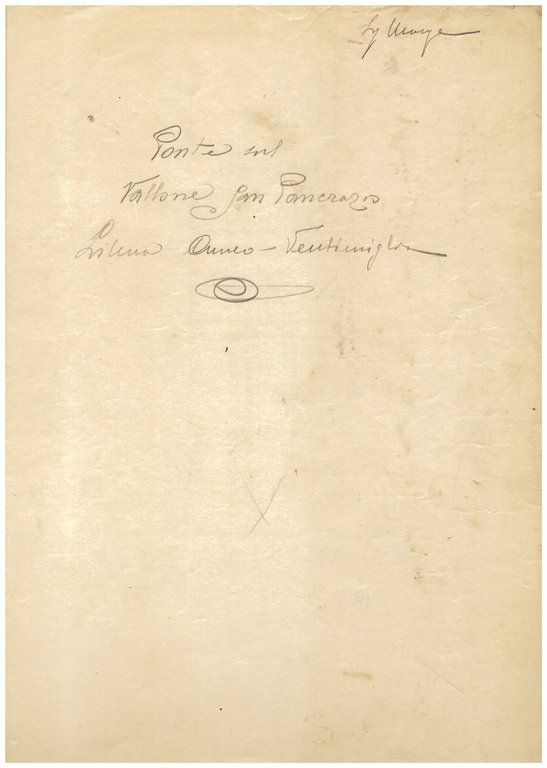 Ponte sul
Vallone San Pancrazio
Linea Cuneo - Ventimiglia